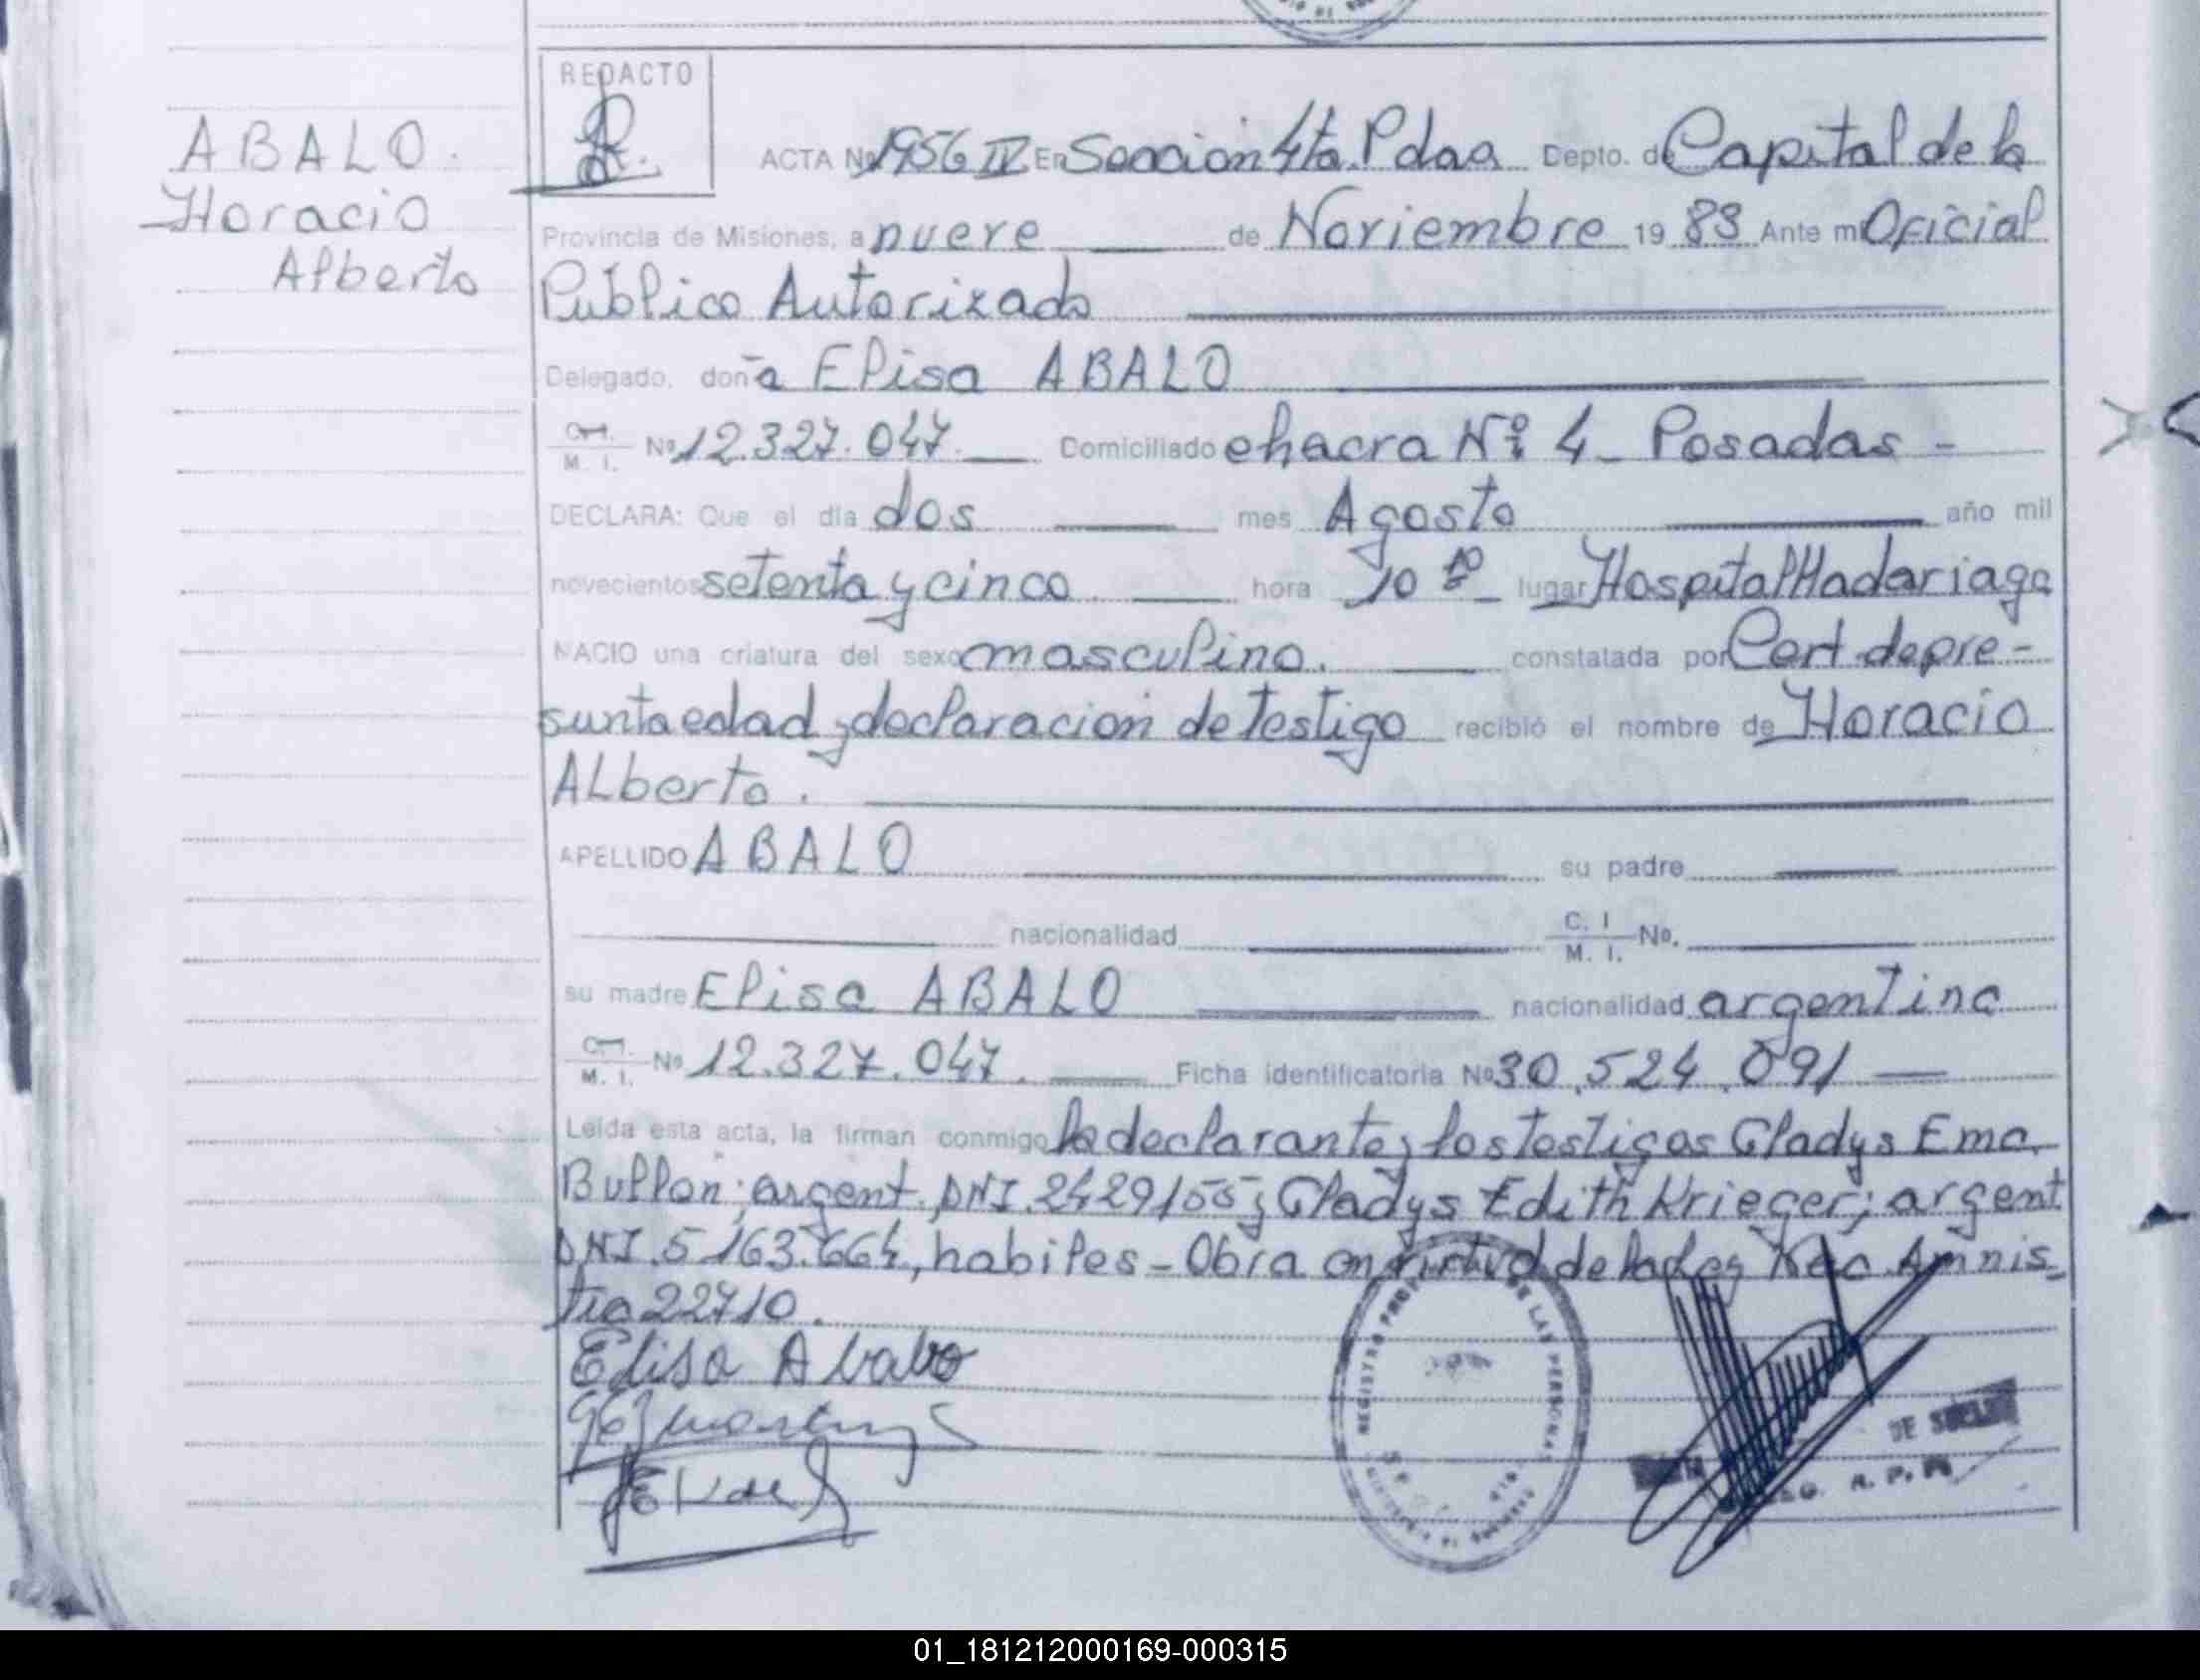 REDACTO
ABALO.
Horacio
Alberto
ACTA Nº 1956 IV En Seccion 4ta. Pdas Depto. de Capital de la
Provincia de Misiones, a nueve de Noviembre 19 83 Ante mi Oficial
Publico Autorizado
Delegado, doña Elisa ABALO
C.I. M. I. Nº 12.327.047. Domiciliado chacra Nº 4 - Posadas -
DECLARA: Que el día dos mes Agosto año mil
novecientos setenta y cinco hora 10 lugar Hospital Madariaga
NACIO una criatura del sexo masculino. constatada por Cert de pre-
sunta edad y declaracion de testigo recibió el nombre de Horacio
ALberto.
APELLIDO ABALO su padre
nacionalidad C. I M. I. No.
su madre Elisa ABALO nacionalidad argentina
C.I. M. I. Nº 12.327.047. Ficha identificatoria Nº 30.524.091
Leída esta acta, la firman conmigo la declarante y los testigos Gladys Ema
argent. DNI. 2429155 y Gladys Edith Krieger; argent
DNI. 5163.664, habiles - Obra en virtud de la Ley Amnis-
tia 22710.
Elisa Abalo
REGISTRO DE LAS PERSONAS
DE
01_181212000169-000315